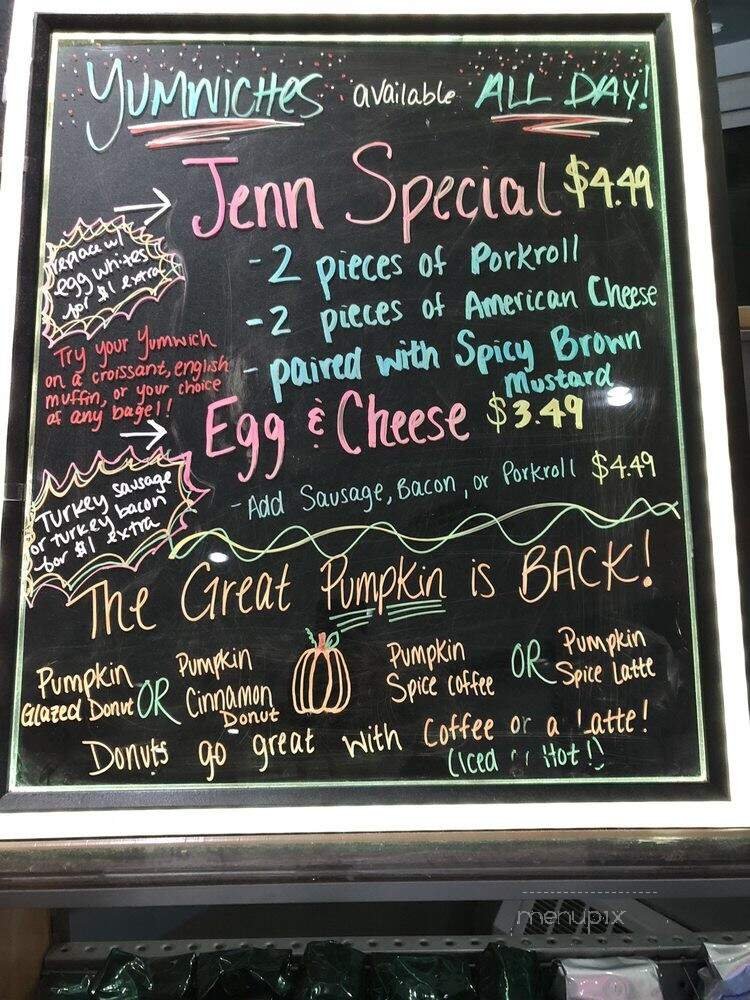 YUMWICHES available ALL DAY!
Jenn Special $4.49
replace w/
egg whites
for $1 extra
- 2 pieces of Porkroll
- 2 pieces of American Cheese
- paired with Spicy Brown
Mustard
Try your Yumwich
on a croissant, english
muffin, or your choice
of any bagel!
Egg & Cheese $3.49
- Add Sausage, Bacon, or Porkroll $4.49
Turkey sausage
or turkey bacon
for $1 extra
The Great Pumpkin is BACK!
Pumpkin
Glazed Donut
OR
Pumpkin
Cinnamon
Donut
Pumpkin
Spice coffee
OR
Pumpkin
Spice Latte
Donuts go great with Coffee or a Latte!
(Iced or Hot!)
menupix